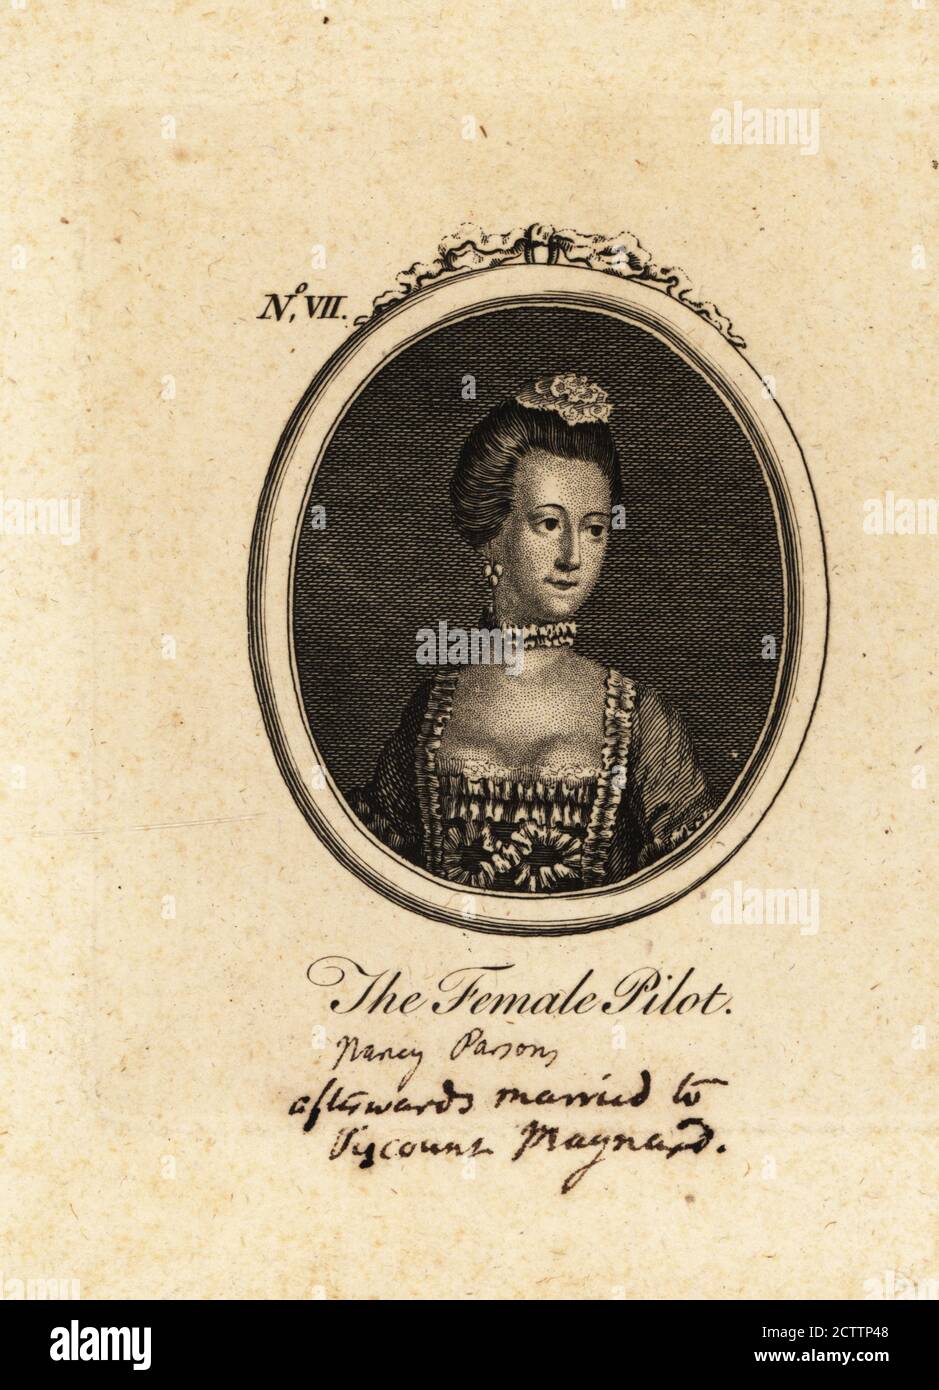 No. VII.
The Female Pilot.
Nancy Parsons
afterwards married to
Viscount Maynard.
alamy
alamy
Image ID: 2CTTP48
www.alamy.com